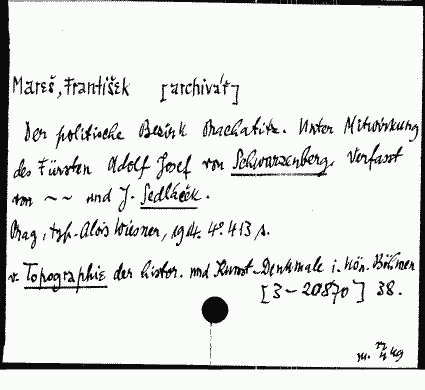 Mareš, František [archivář]
Der politische Bezirk Prachatitz. Unter Mitwirkung
des Fürsten Adolf Josef von Schwarzenberg. Verfasst
von ~~ und J. Sedláček.
Prag, typ. Alois Wiesner, 1914. 4° 413 s.
v. Topographie der histor. und Kunst-Denkmale i. Kön. Böhmen
[3-20870] 38.
m. 49